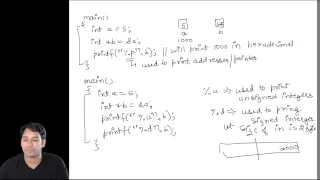 main()
{ int a = 5;
int *b = &a;
printf("%p", b); // will print 1000 in hexadecimal
} → used to print addresses/pointer
5
a
1000
b
main()
{ int a = 5;
int *b = &a;
printf("%u", b);
printf("%d", b);
}
%u ⇒ used to print
unsigned integers
%d ⇒ used to print
signed integer
let size of in is 2 byte